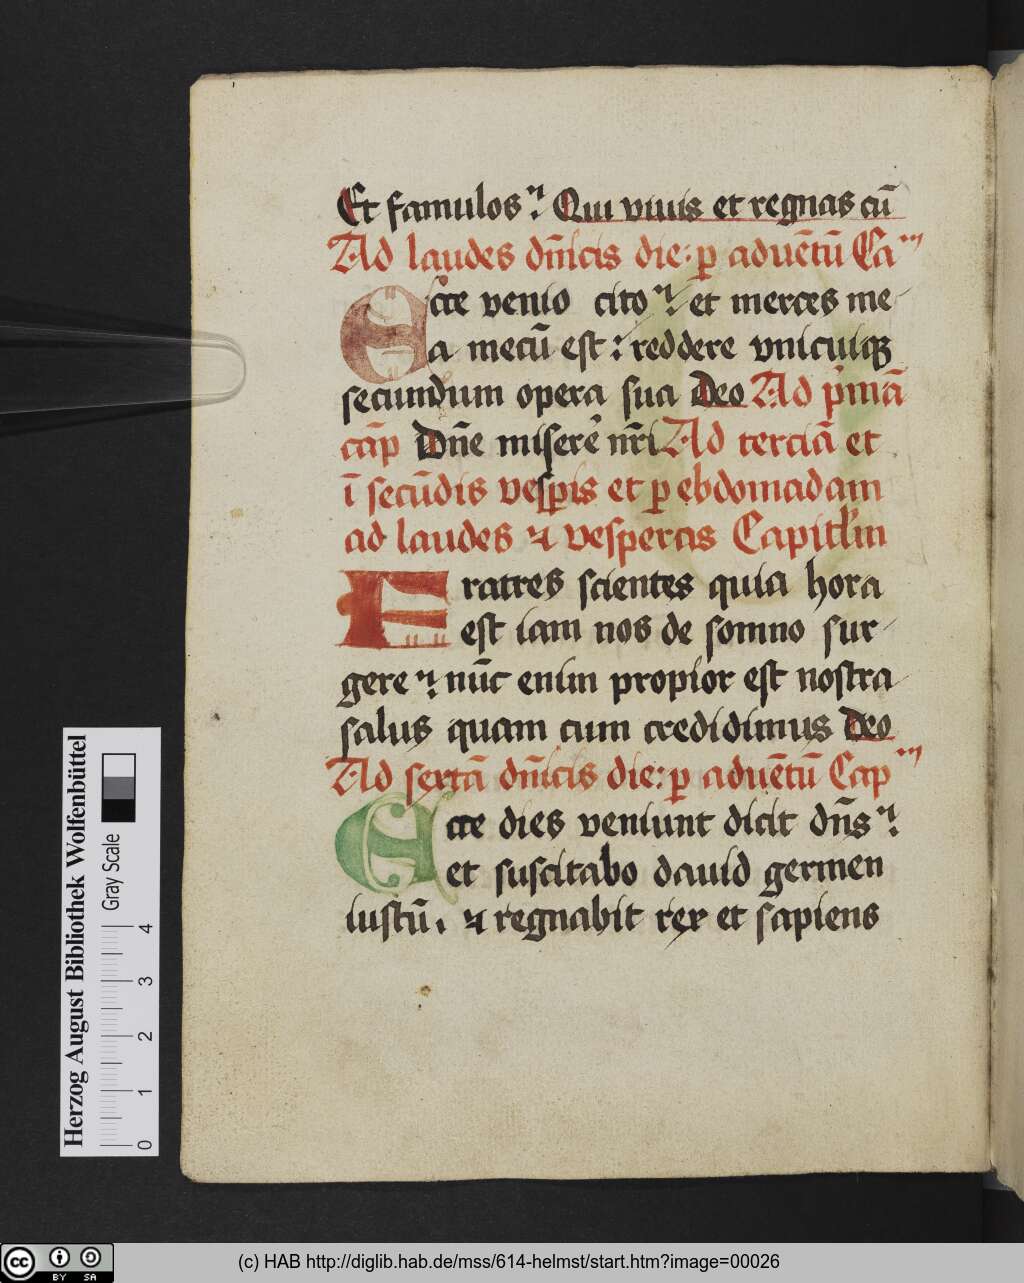 Et famulos Qui viuis et regnas cū
Ad laudes dn̄icis die: ꝑ aduētū Ca
Ecce venio cito et merces me
a mecū est : reddere vnicuiqꝫ
secundum opera sua Deo Ad pͥmā
cāp Dn̄e miserē nr̄i Ad terciā et
ī secūdis vesꝑis et ꝑ ebdomadam
ad laudes ⁊ vesperas Capitl'm
Fratres scientes quia hora
est iam nos de somno sur
gere nūc enim propior est nostra
salus quam cum credidimus Deo
Ad sextā dn̄icis die: ꝑ aduētū Cap
Ecce dies veniunt dicit dn̄s
et suscitabo dauid germen
iustū. ⁊ regnabit rex et sapiens
Herzog August Bibliothek Wolfenbüttel
Gray Scale
0 1 2 3 4
cc BY SA
(c) HAB http://diglib.hab.de/mss/614-helmst/start.htm?image=00026